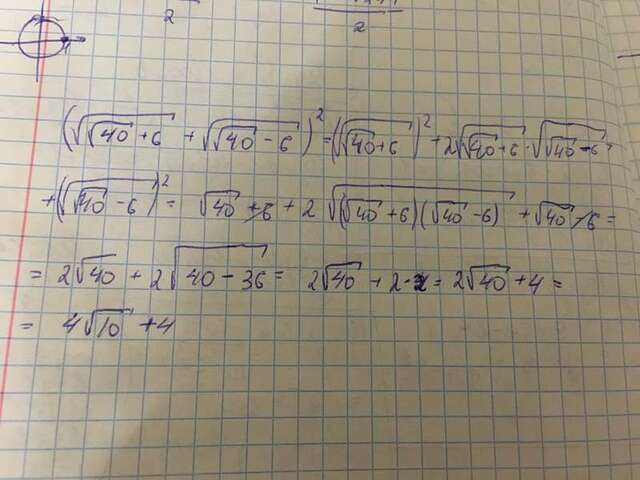 2
2
(√(√40 + 6) + √(√40 - 6))² = (√(√40 + 6))² + 2√(√40 + 6) · √(√40 - 6) +
+ (√(√40 - 6))² = √40 + 6 + 2√((√40 + 6)(√40 - 6)) + √40 - 6 =
= 2√40 + 2√(40 - 36) = 2√40 + 2·2 = 2√40 + 4 =
= 4√10 + 4